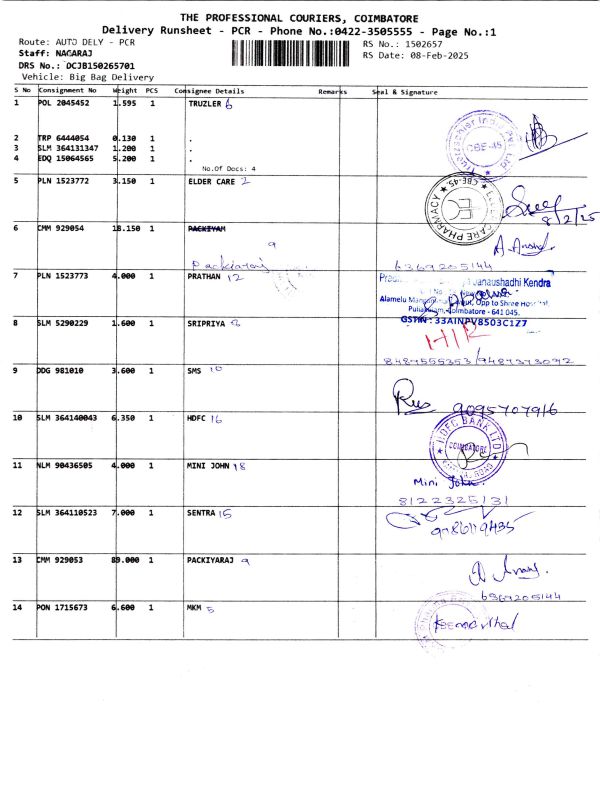 THE PROFESSIONAL COURIERS, COIMBATORE
Delivery Runsheet - PCR - Phone No.:0422-3505555 - Page No.:1
Route: AUTO DELY - PCR
RS No.: 1502657
Staff: NAGARAJ
RS Date: 08-Feb-2025
DRS No.: DCJB150265701
Vehicle: Big Bag Delivery
S No Consignment No Weight PCS Consignee Details Remarks Seal & Signature
1 POL 2045452 1.595 1 TRUZLER 6
2 TRP 6444054 0.130 1 .
3 SLM 364131347 1.200 1 .
4 EDQ 15064565 5.200 1 .
CBE-45
No.Of Docs: 4
5 PLN 1523772 3.150 1 ELDER CARE 2
CBE-45.
CARE PHARMACY
8/2/25
6 CMM 929054 18.150 1 PACKIYAM
9
Packiaraj
6369205144
7 PLN 1523773 4.000 1 PRATHAN 12
Janaushadhi Kendra
Alamelu
Opp to Shree Hospital,
Coimbatore - 641 045.
GSTIN : 33AINPV8503C1Z7
8 SLM 5290229 1.600 1 SRIPRIYA 8
H/R
8487555353 / 9487373092
9 DDG 981010 3.600 1 SMS 10
9095707916
10 SLM 364140043 6.350 1 HDFC 16
HDFC BANK LTD
COIMBATORE
11 NLM 90436505 4.000 1 MINI JOHN 18
Mini John.
8122325131
12 SLM 364110523 7.000 1 SENTRA 15
13 CMM 929053 89.000 1 PACKIYARAJ 9
6369205144
14 PON 1715673 6.600 1 MKM 5